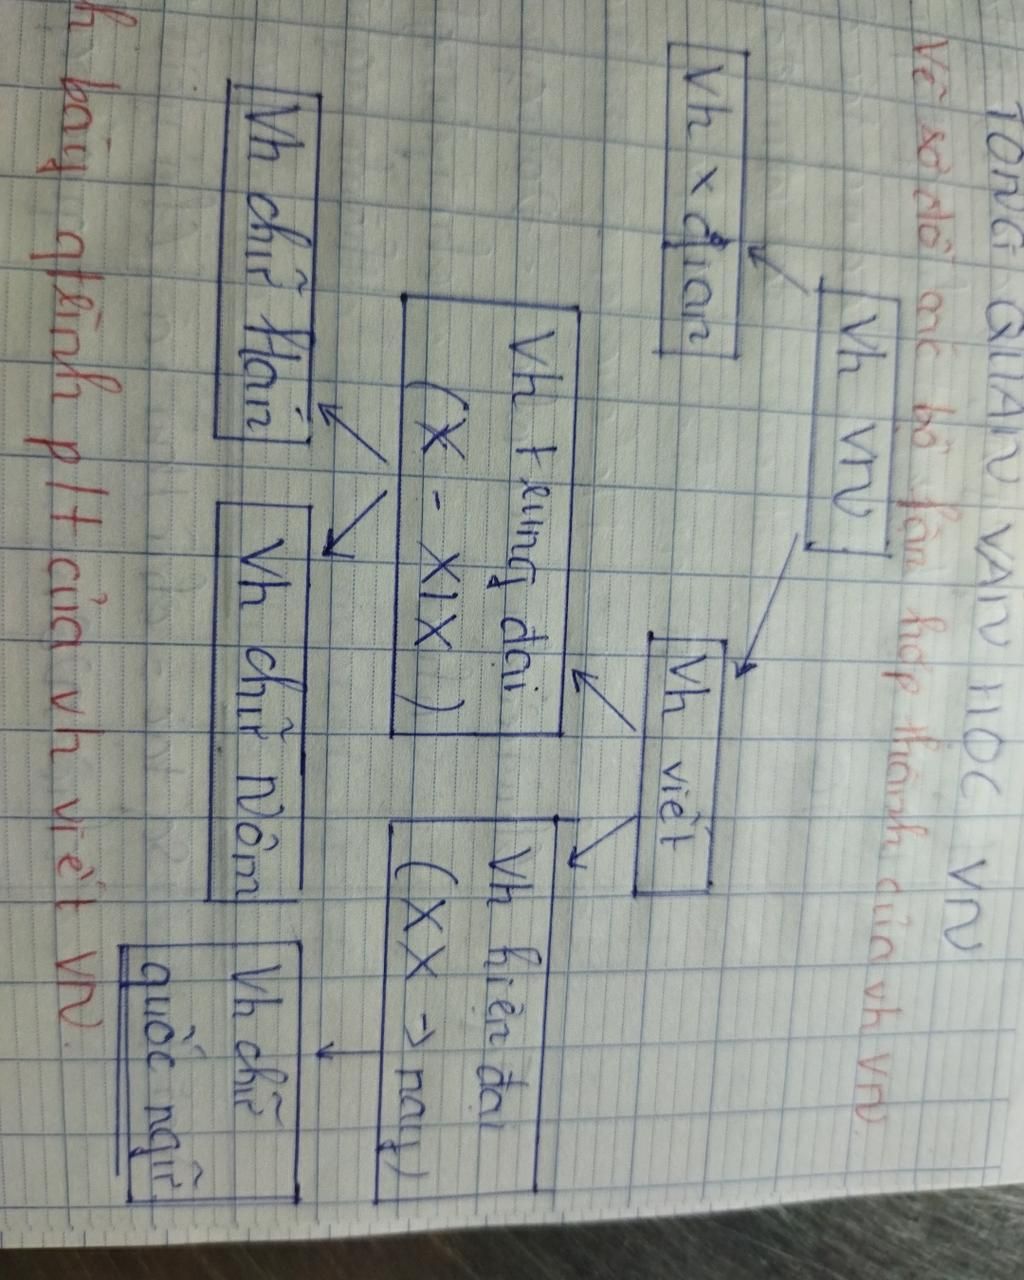 TỔNG QUAN VĂN HỌC VN
Vẽ sơ đồ các bộ fận hợp thành của vh VN.
Vh VN
Vh x gian
Vh viết
Vh trung đại
(X - XIX)
Vh hiện đại
(XX -> nay)
Vh chữ Hán
Vh chữ Nôm
Vh chữ
quốc ngữ
h bày qtrình p/t của vh viết VN.